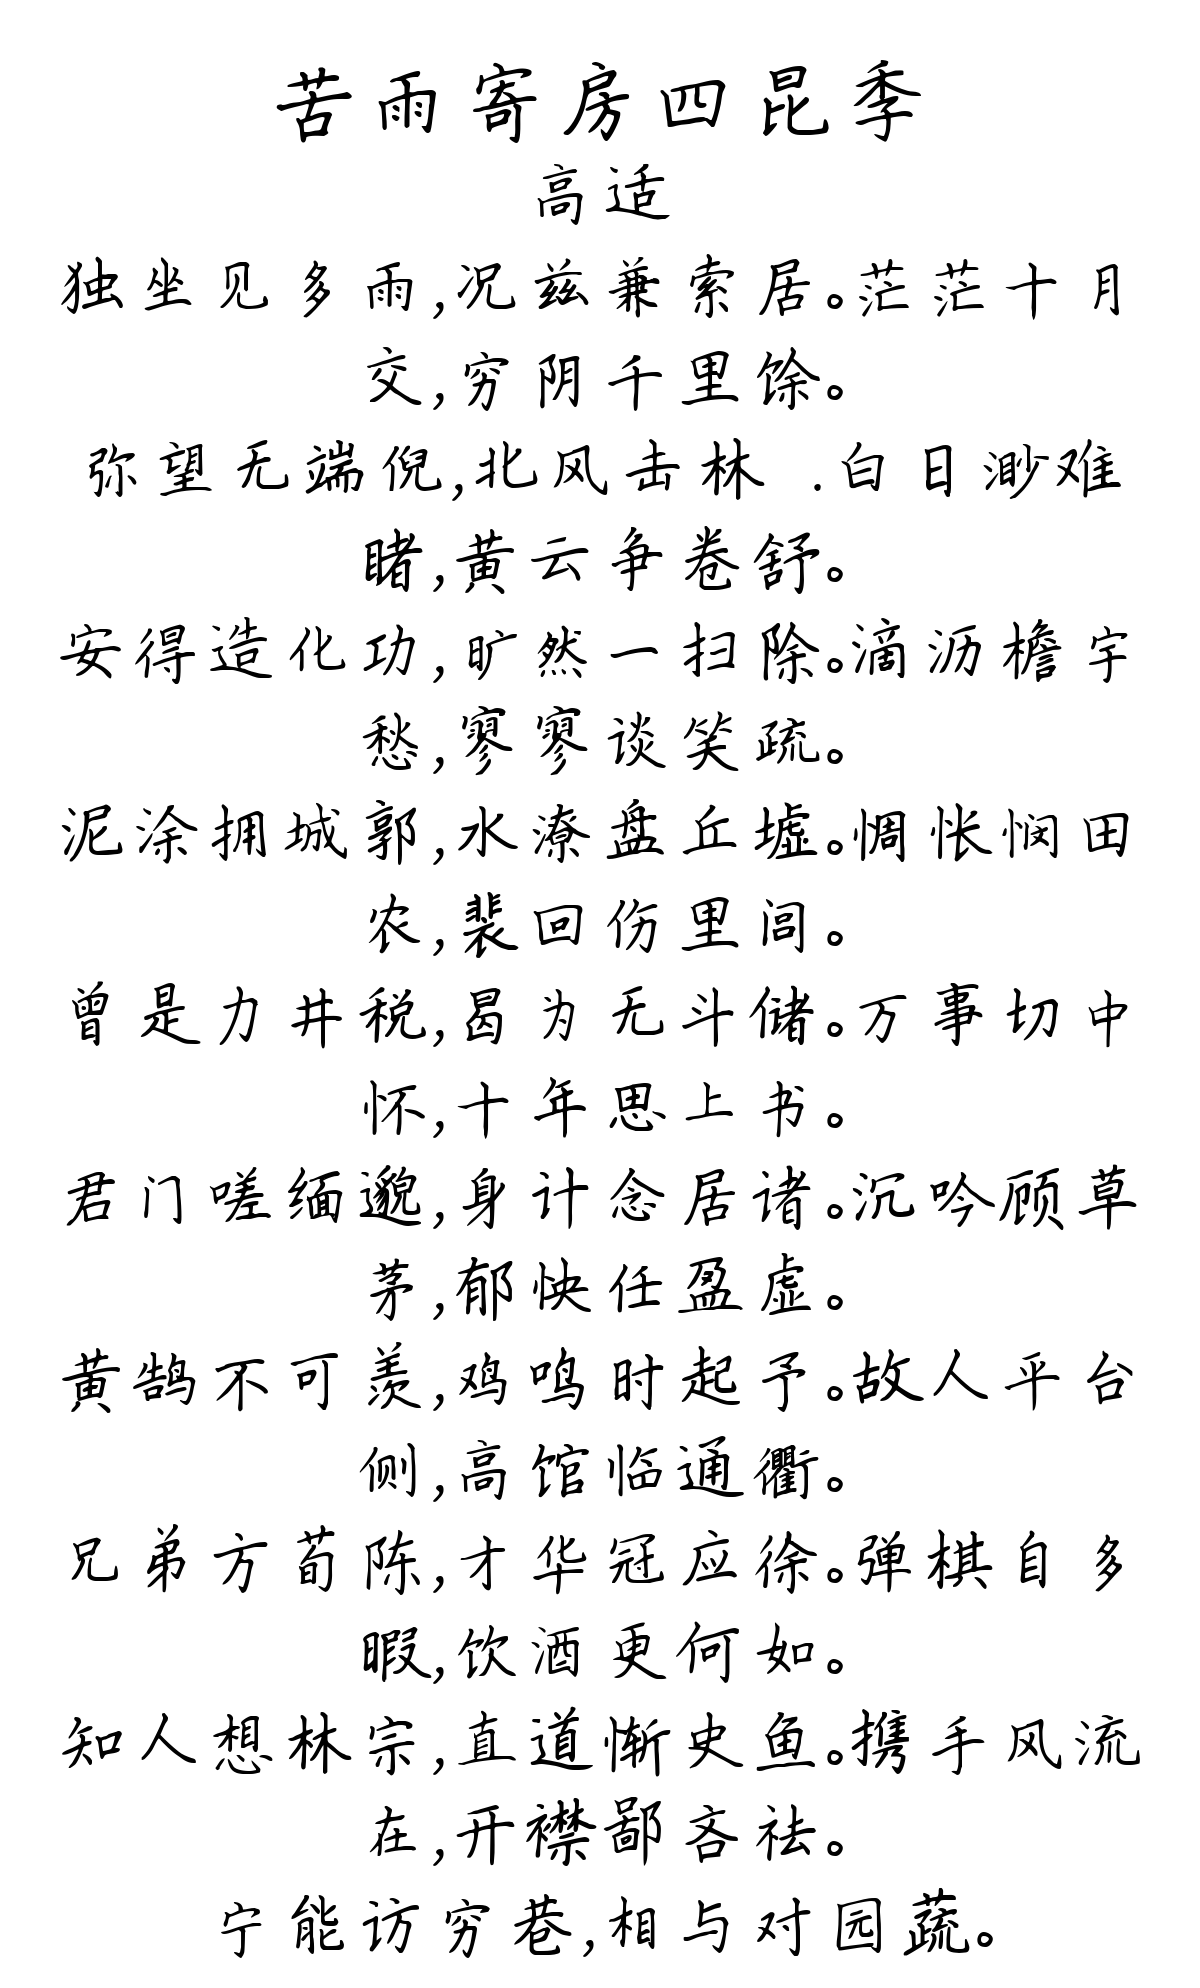 苦雨寄房四昆季
高适
独坐见多雨,况兹兼索居。茫茫十月
交,穷阴千里馀。
弥望无端倪,北风击林 .白日渺难
睹,黄云争卷舒。
安得造化功,旷然一扫除。滴沥檐宇
愁,寥寥谈笑疏。
泥涂拥城郭,水潦盘丘墟。惆怅悯田
农,裴回伤里闾。
曾是力井税,曷为无斗储。万事切中
怀,十年思上书。
君门嗟缅邈,身计念居诸。沉吟顾草
茅,郁怏任盈虚。
黄鹄不可羡,鸡鸣时起予。故人平台
侧,高馆临通衢。
兄弟方荀陈,才华冠应徐。弹棋自多
暇,饮酒更何如。
知人想林宗,直道惭史鱼。携手风流
在,开襟鄙吝祛。
宁能访穷巷,相与对园蔬。